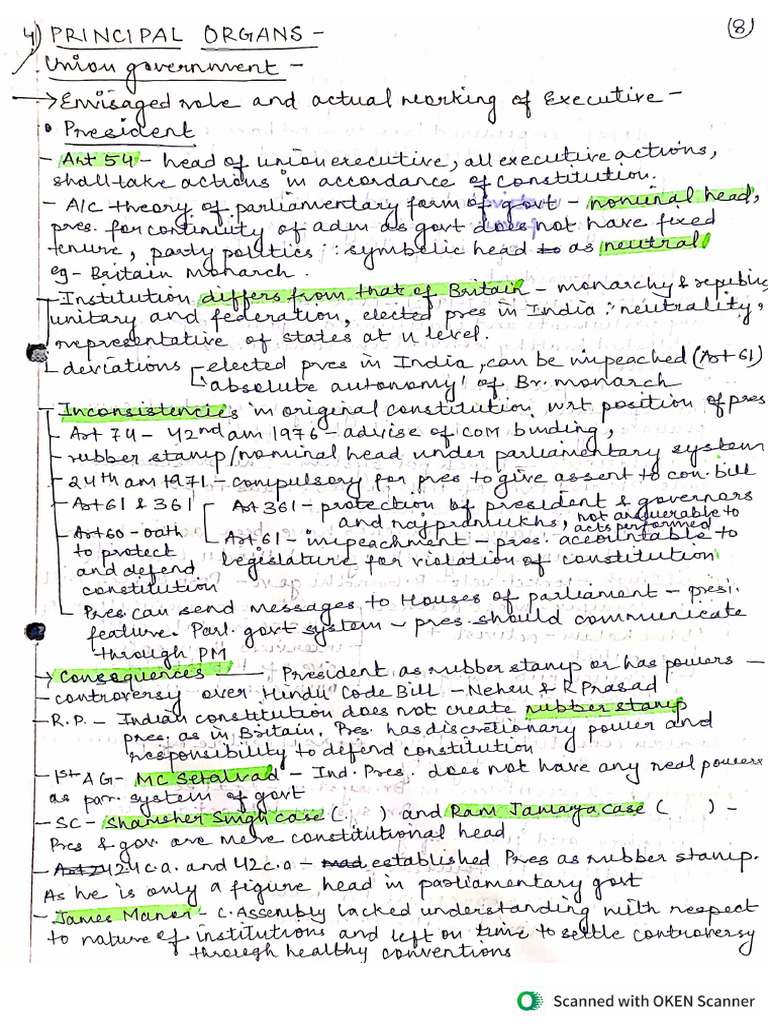 4) PRINCIPAL ORGANS - (8)
Union government -
→ Envisaged role and actual working of Executive -
• President
- Art 54 - head of union executive, all executive actions,
shall take actions in accordance of constitution.
- A/c theory of parliamentary form of govt - nominal head,
pres. for continuity of adm as govt does not have fixed
tenure, party politics ∴ symbolic head to as neutral
eg - Britain monarch.
- Institution differs from that of Britain - monarchy & republic
unitary and federation, elected pres in India ∵ neutrality,
representative of states at U level.
deviations - elected pres in India, can be impeached (Art 61)
'absolute autonomy' of Br. monarch
Inconsistencies in original constitution wrt position of pres
- Art 74 - 42nd am 1976 - advise of COM binding,
- rubber stamp/nominal head under parliamentary system
- 24th am 1971 - compulsory for pres to give assert to con. bill
- Art 61 & 361 Art 361 - protection of president & governors
and rajpramukhs, not answerable to
acts performed
- Art 60 - oath Art 61 - impeachment - pres. accountable to
to protect legislature for violation of constitution
and defend
constitution
- Pres can send messages to Houses of parliament - presi.
feature. Parl. govt system - pres. should communicate
through PM
→ Consequences - President as rubber stamp or has powers -
- controversy over Hindu Code Bill - Nehru & R Prasad
- R.P. - Indian constitution does not create rubber stamp
pres. as in Britain. Pres. has discretionary power and
responsibility to defend constitution
- 1st AG - MC Setalvad - Ind. Pres. does not have any real powers
as par. system of govt
- SC - Shamsher Singh case ( ) and Ram Jawaya case ( ) -
Pres & gov. are mere constitutional head
- 24 c.a. and 42 c.a - established Pres as rubber stamp.
As he is only a figure head in parliamentary govt
- James Manor - C. Assembly lacked understanding with respect
to nature of institutions and left on time to settle controversy
through healthy conventions
Scanned with OKEN Scanner